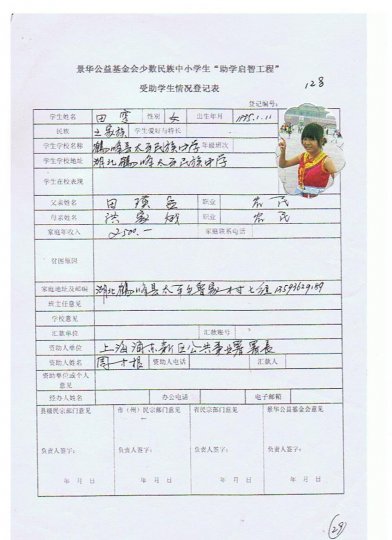 景华公益基金会少数民族中小学生“助学启智工程”
受助学生情况登记表
128
登记编号:
学生姓名 田 性别 女 出生年月 1995.1.11
民族 土家族 学生爱好与特长
学生学校名称 鹤峰县太平民族中学 年级班次
学生学校地址 湖北鹤峰太平民族中学
学生在校表现
父亲姓名 田 职业 农民
母亲姓名 洪 职业 农民
家庭年收入 2500.— 家庭联系电话
贫困原因
家庭地址及邮编 湖北鹤峰县太平乡 村七组 13593629189
班主任意见
学校意见
汇款单位 汇款账号
资助人单位 上海浦东新区公共事业署署长
资助人姓名 周才根 资助人电话 汇款人
资助单位或个人意见
经办人姓名 办公电话 电子邮箱
县级民宗部门意见 市(州)民宗部门意见 省民宗部门意见 景华公益基金会意见
负责人签字: 负责人签字: 负责人签字: 负责人签字:
年 月 日 年 月 日 年 月 日 年 月 日
29